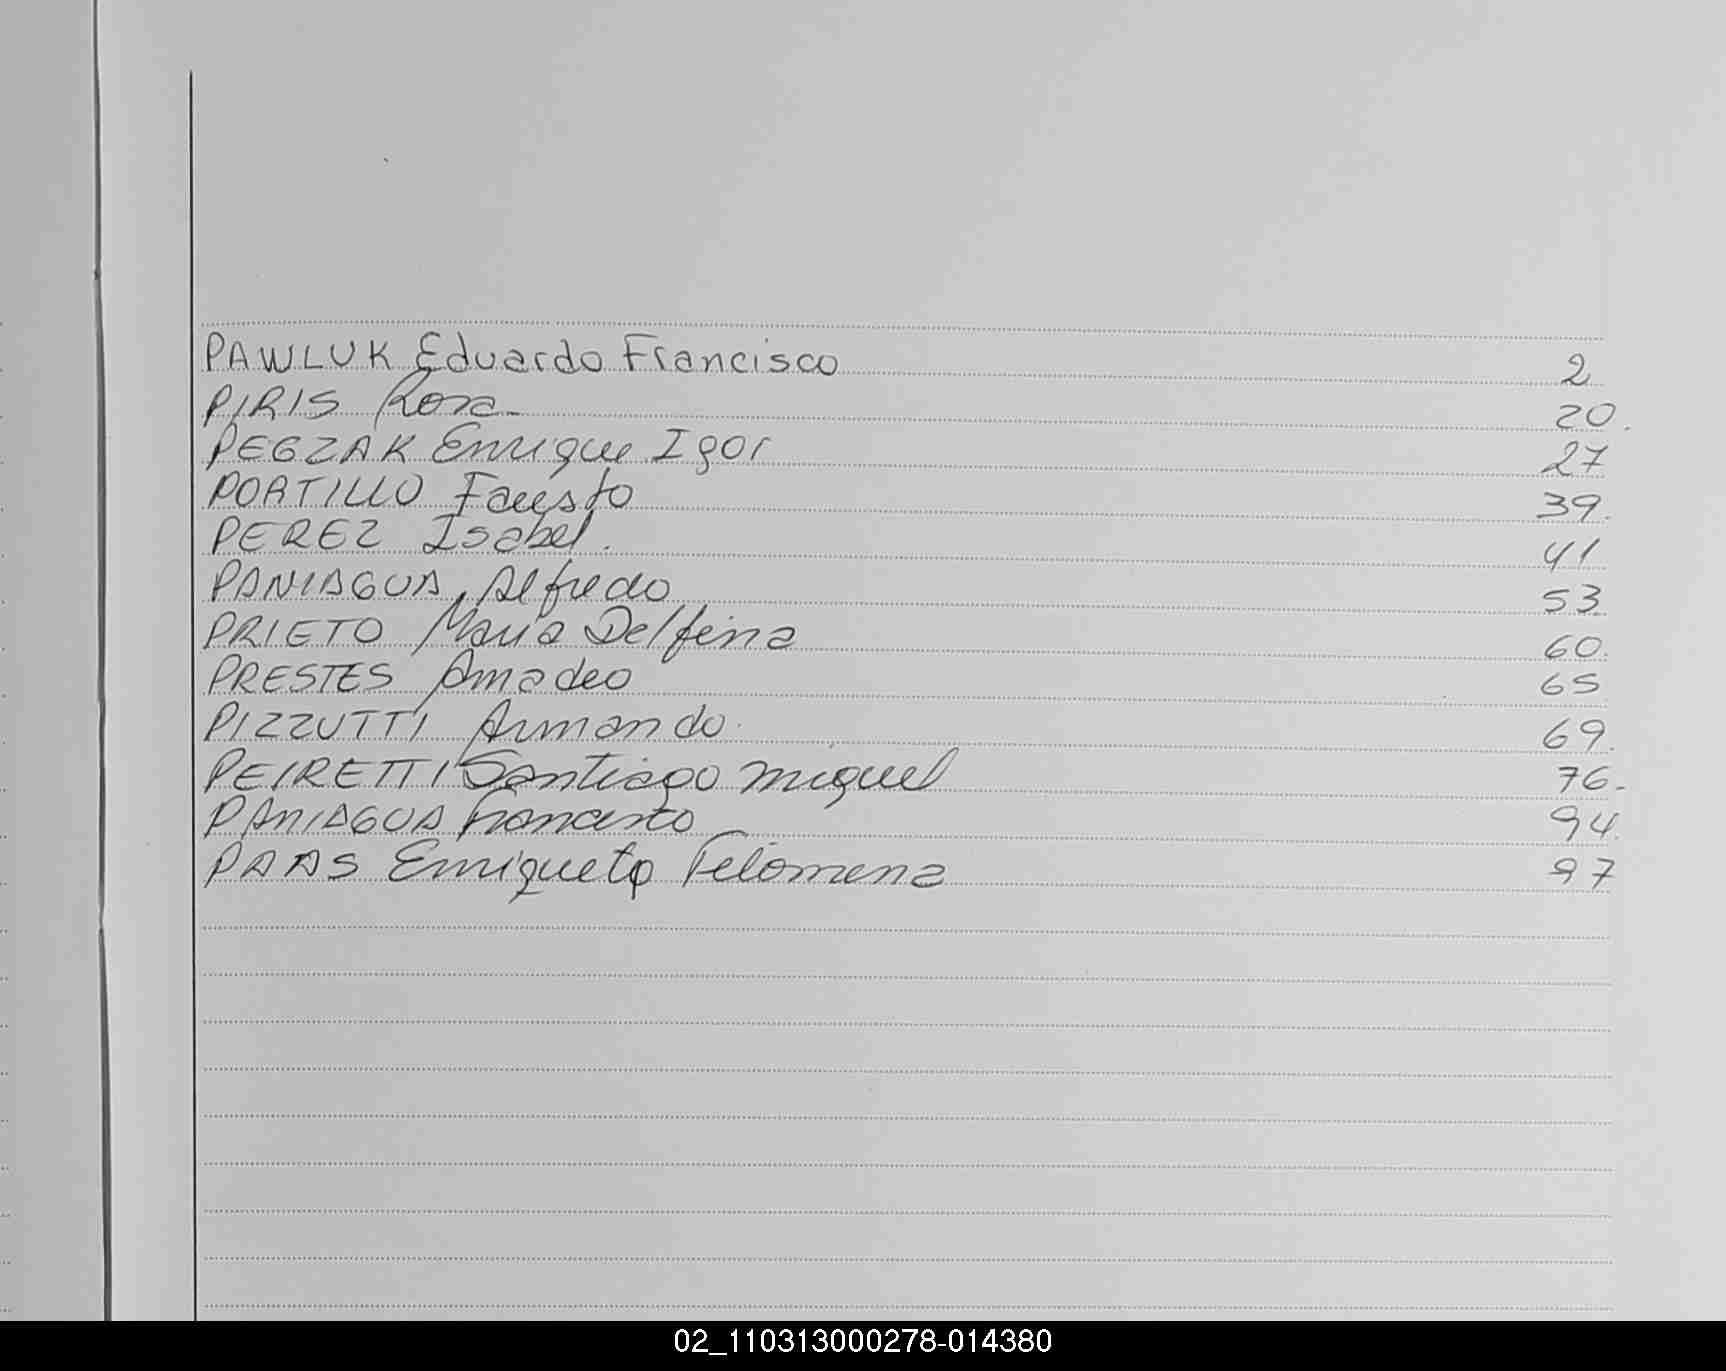 PAWLUK Eduardo Francisco 2
PIRIS Rosa 20.
PEGZAK Enrique Igor 27
PORTILLO Fausto 39.
PEREZ Isabel. 41
PANIAGUA, Alfredo 53.
PRIETO Maria Delfina 60.
PRESTES Amadeo 65
PIZZUTTI Armando 69.
PEIRETTI Santiago Miguel 76.
PANIAGUA 94.
Enriqueta Felomena 97
02_110313000278-014380